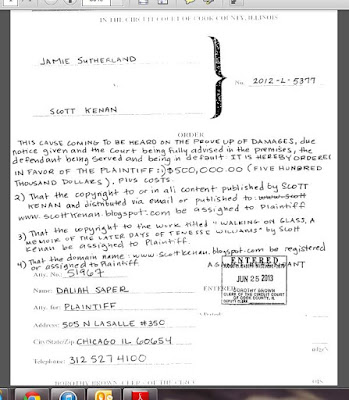 IN THE CIRCUIT COURT OF COOK COUNTY, ILLINOIS
JAMIE SUTHERLAND
v.
No. 2012-L-5377
SCOTT KENAN
ORDER
THIS CAUSE COMING TO BE HEARD ON THE PROVE UP OF DAMAGES, due
notice given and the Court being fully advised in the premises, the
defendant being served and being in default: IT IS HEREBY ORDERED
IN FAVOR OF THE PLAINTIFF: 1) $500,000.00 (FIVE HUNDRED
THOUSAND DOLLARS), PLUS COSTS.
2) That the copyright to or in all content published by SCOTT
KENAN and distributed via email or published to: www.scott
www.scottkenan.blogspot.com be assigned to Plaintiff
3) That the copyright to the work titled "WALKING ON GLASS, A
MEMOIR OF THE LATER DAYS OF TENESSE WILLIAMS" by Scott
Kenan be assigned to Plaintiff.
4) That the domain name: www.scottkenan.blogspot.com be registered
or assigned to Plaintiff
Atty. No.: 51967
Name: DALIAH SAPER
ENTERED
Atty. for: PLAINTIFF
Address: 505 N LASALLE #350
City/State/Zip: CHICAGO IL 60654
Telephone: 312 527 4100
ENTERED
JUN 25 2013
DOROTHY BROWN
CLERK OF THE CIRCUIT COURT
OF COOK COUNTY, IL
DEPUTY CLERK